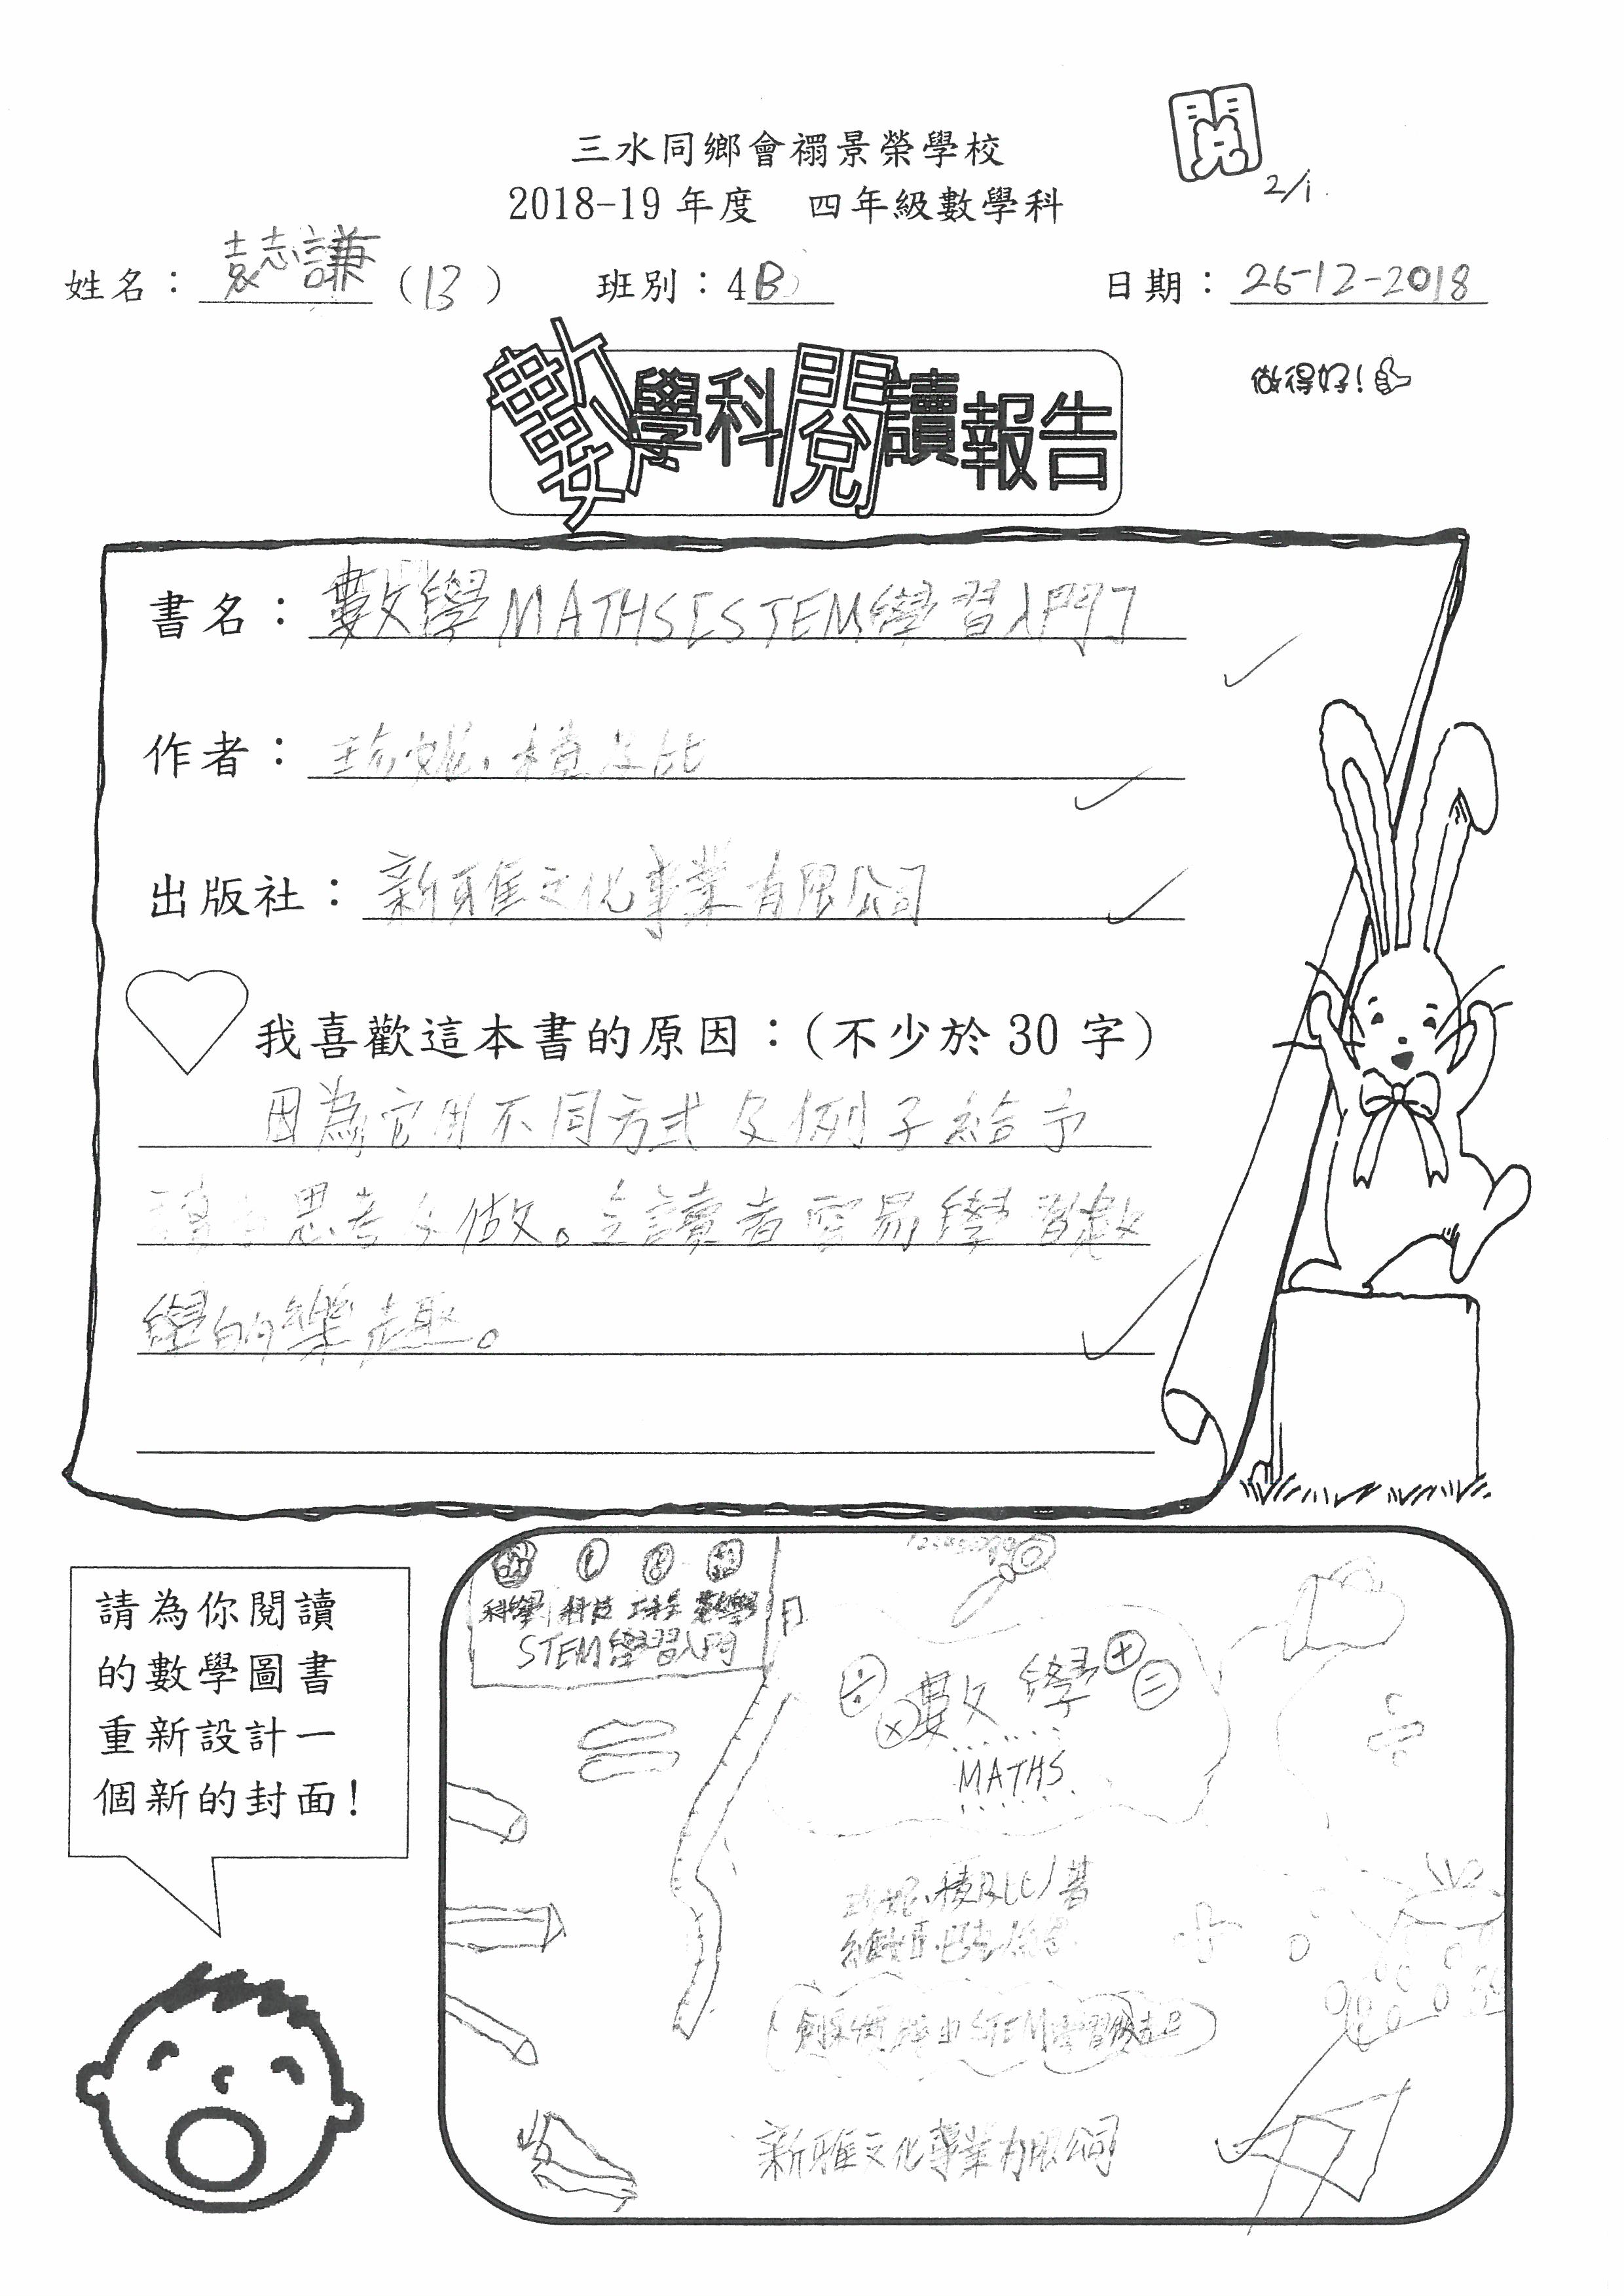 三水同鄉會禤景榮學校
閱
2018-19 年度 四年級數學科
2/1.
姓名：袁志謙（13） 班別：4B 日期：26-12-2018
數學科閱讀報告
做得好！
書名：數學MATHSISTEM學習入門
作者：珍妮．積及比
出版社：新雅文化事業有限公司
我喜歡這本書的原因：(不少於 30 字)
因為它用不同方式及例子給予
思考及做。讀者容易學習數
學的樂趣。
請為你閱讀
的數學圖書
重新設計一
個新的封面!
科學 科技 工程 數學
STEM學習入門
÷ × 數學 + =
MATHS
珍妮．積及比/著
STEM
新雅文化事業有限公司